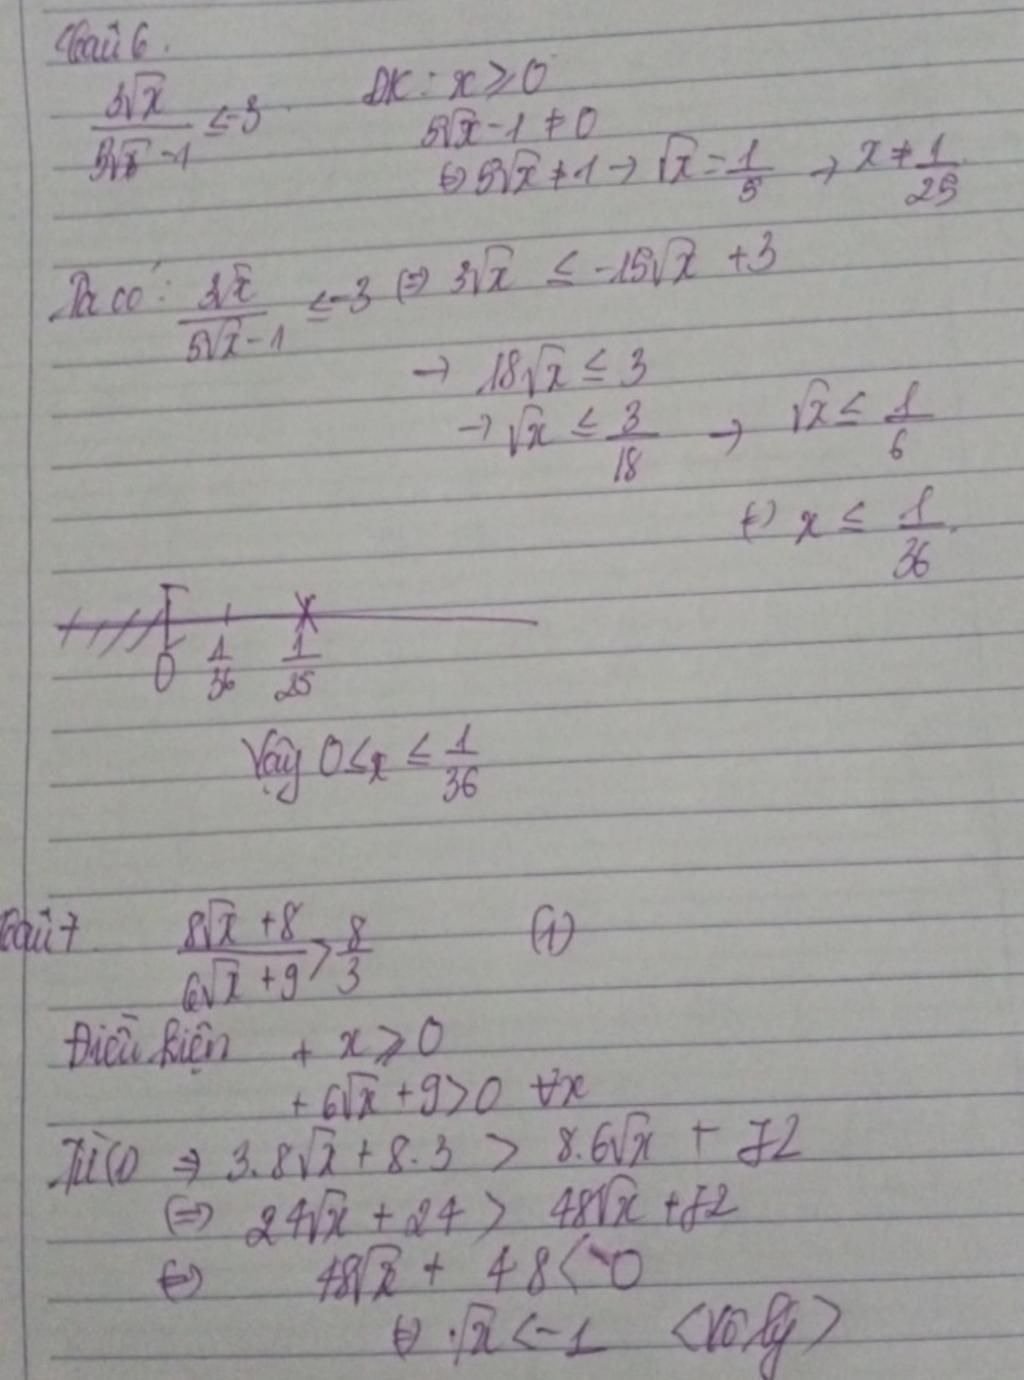 Câu 6.
3√x / 5√x - 1 ≤ -3 ĐK: x ≥ 0
5√x - 1 ≠ 0
⇔ 5√x ≠ 1 → √x = 1/5 → x ≠ 1/25
Ta có: 3√x / 5√x - 1 ≤ -3 ⇔ 3√x ≤ -15√x + 3
→ 18√x ≤ 3
→ √x ≤ 3/18 → √x ≤ 1/6
⇔ x ≤ 1/36.
0 1/36 1/25
Vậy 0 ≤ x ≤ 1/36
Câu 7 8√x + 8 / 6√x + 9 > 8/3 (1)
Điều kiện + x ≥ 0
+ 6√x + 9 > 0 ∀x
Từ (1) ⇒ 3.8√x + 8.3 > 8.6√x + 72
⇔ 24√x + 24 > 48√x + 72
⇔ 48√x + 48 < 0
⇔ √x < -1 <Vô lý>